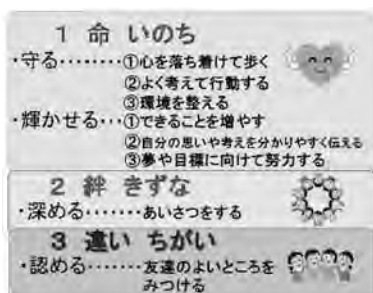 1 命 いのち
・守る・・・・・・・・①心を落ち着けて歩く
②よく考えて行動する
③環境を整える
・輝かせる・・・①できることを増やす
②自分の思いや考えを分かりやすく伝える
③夢や目標に向けて努力する
2 絆 きずな
・深める・・・・・・・あいさつをする
3 違い ちがい
・認める・・・・・・・友達のよいところを
みつける